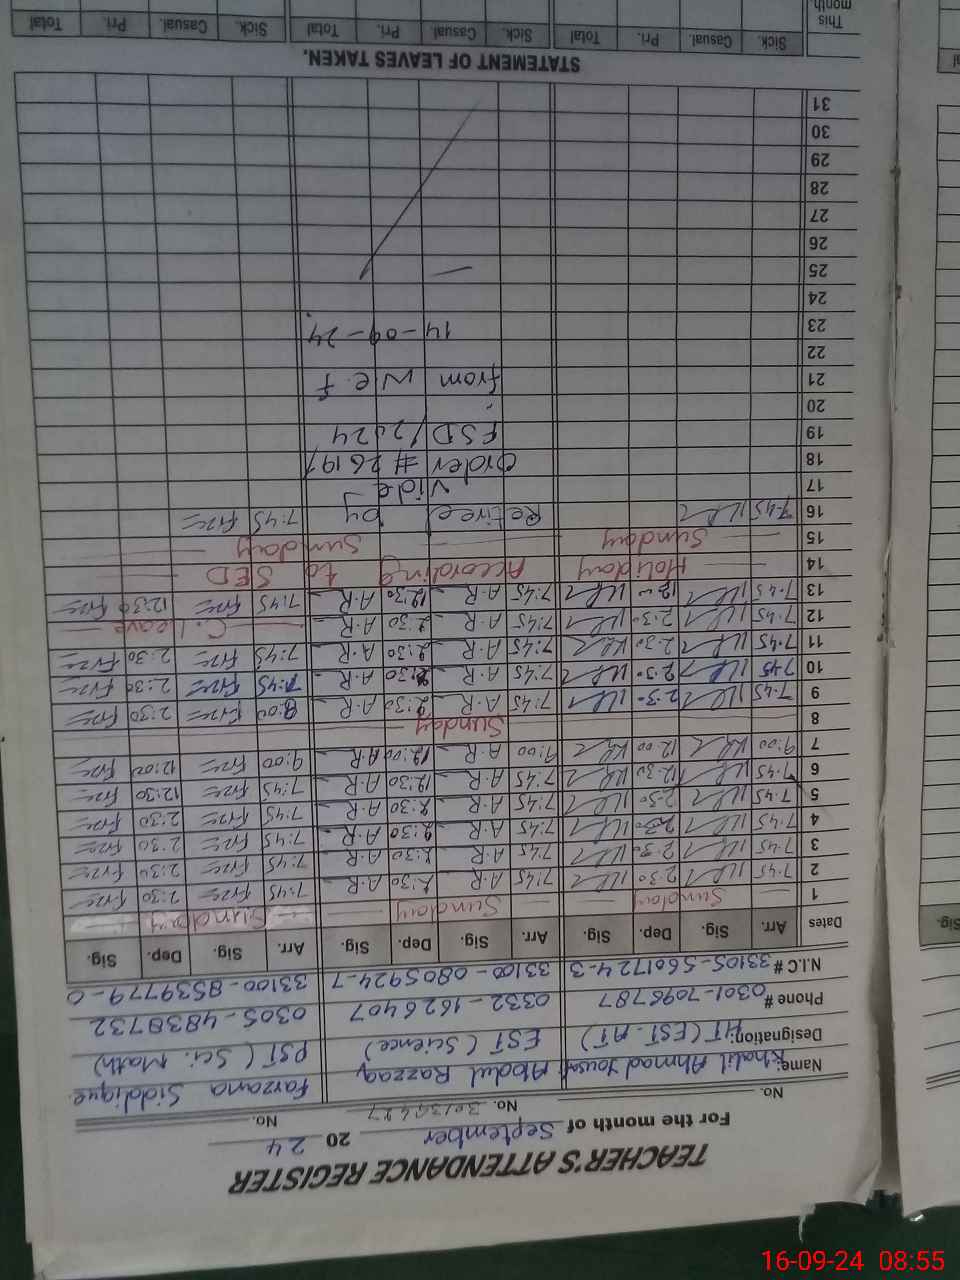 TEACHER'S ATTENDANCE REGISTER
For the month of September 20 24
No. No. 30139427 No.
Name: Khalil Ahmad Yousaf Abdul Razzaq Farzana Siddique
Designation: HT (EST-AT) EST (Science) PST (Sci. Math)
Phone # 0301-7098787 0332-1626407 0305-4838732
N.I.C # 33105-5601724-3 33100-0805924-7 33100-8539779-0
Dates Arr. Sig. Dep. Sig. Arr. Sig. Dep. Sig. Arr. Sig. Dep. Sig.
1 Sunday Sunday Sunday
2 7:45 2:30 7:45 A.R 2:30 A.R 7:45 2:30
3 7:45 2:30 7:45 A.R 2:30 A.R 7:45 2:30
4 7:45 2:30 7:45 A.R 2:30 A.R 7:45 2:30
5 7:45 2:30 7:45 A.R 2:30 A.R 7:45 2:30
6 7:45 12:30 7:45 A.R 12:30 A.R 7:45 12:30
7 9:00 12:00 9:00 A.R 12:00 A.R 9:00 12:00
8 Sunday
9 7:45 2:30 7:45 A.R 2:30 A.R 8:00 2:30
10 7:45 2:30 7:45 A.R 2:30 A.R 7:45 2:30
11 7:45 2:30 7:45 A.R 2:30 A.R 7:45 2:30
12 7:45 2:30 7:45 A.R 2:30 A.R C. Leave
13 7:45 7:45 A.R 12:30 A.R 7:45 12:30
14 Holiday According to SED
15 Sunday Sunday
16 7:45 Retired by 7:45
17 Vide
18 Order # 2619/
19 FSD/2024
20
21 from w.e.f
22
23 14-09-24
24
25
26
27
28
29
30
31
STATEMENT OF LEAVES TAKEN.
Sick. Casual. Pri. Total Sick. Casual. Pri. Total Sick. Casual. Pri. Total
This month.
Sig.
16-09-24 08:55